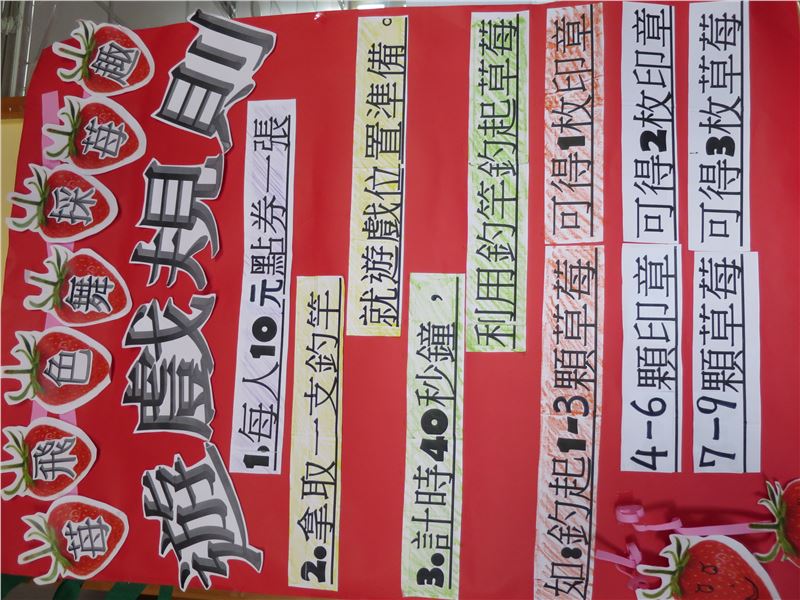 莓飛色舞採莓趣
遊戲規則
1.每人10元點券一張
2.拿取一支釣竿
就遊戲位置準備。
3.計時40秒鐘，
利用釣竿釣起草莓
如:釣起1-3顆草莓 可得1枚印章
4-6顆印章 可得2枚印章
7-9顆草莓 可得3枚草莓